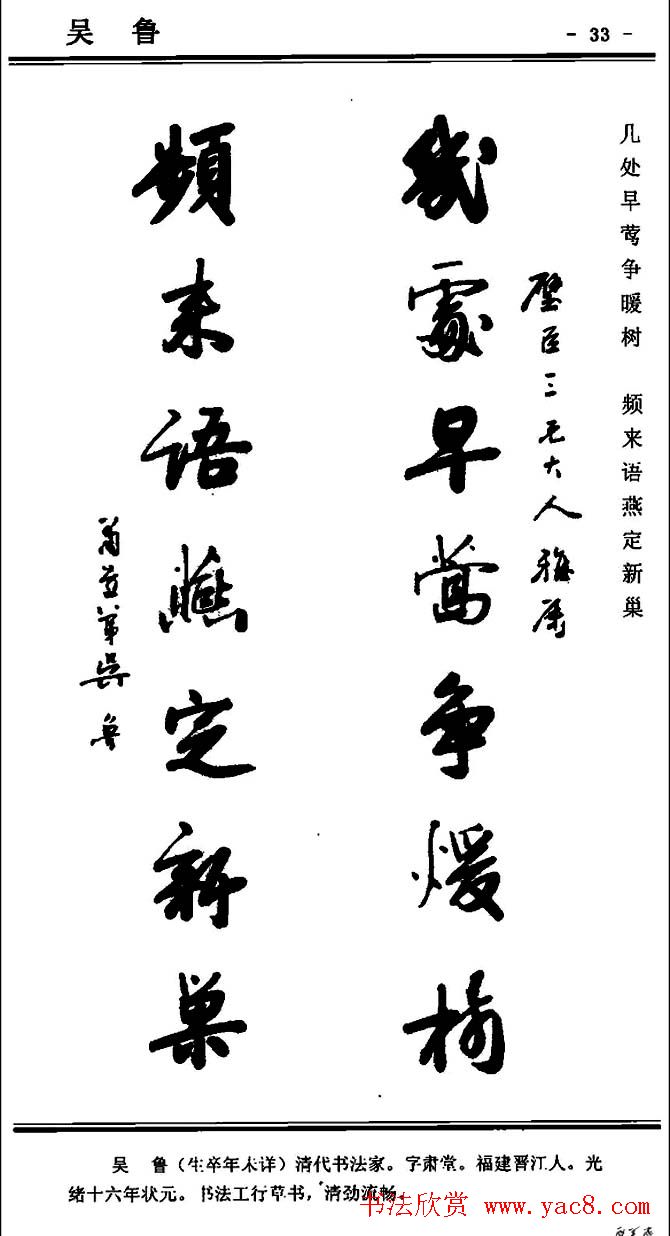 吴 鲁
- 33 -
几处早莺争暖树 频来语燕定新巢
三兄大人雅属
几处早莺争煖树
頻来语燕定新巢
弟吴鲁
吴 鲁（生卒年未详）清代书法家。字肃堂。福建晋江人。光
绪十六年状元。书法工行草书，清劲流畅。
书法欣赏 www.yac8.com